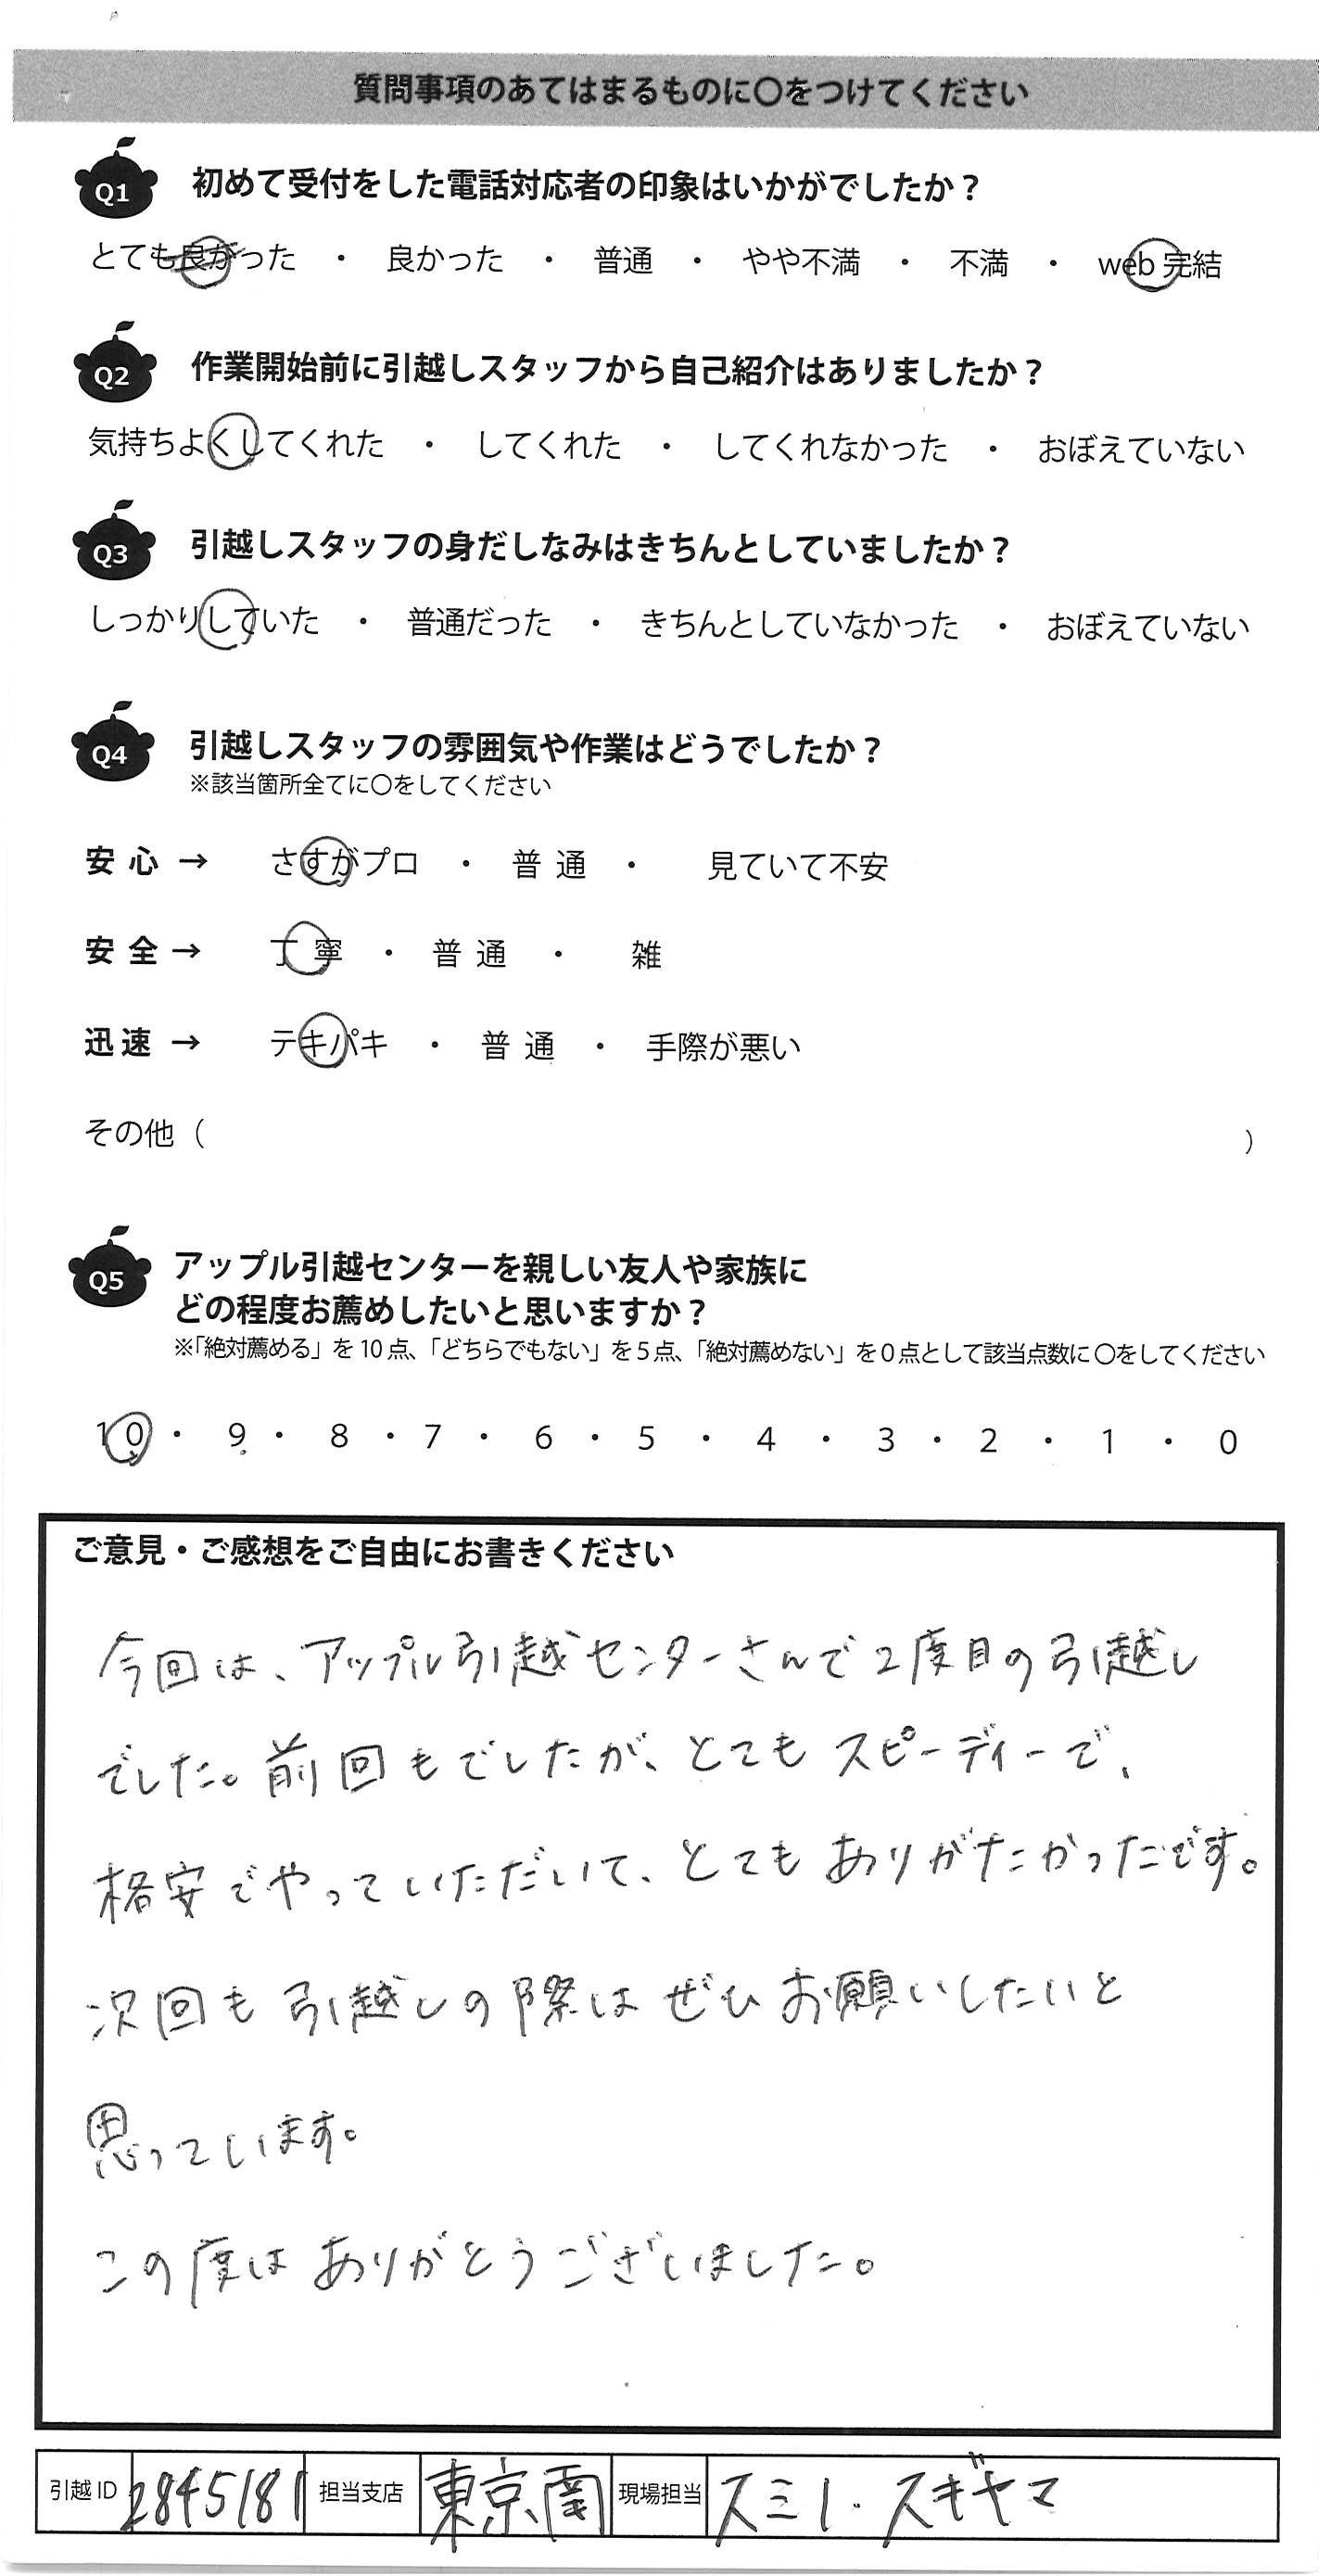 質問事項のあてはまるものに〇をつけてください
Q1 初めて受付をした電話対応者の印象はいかがでしたか？
とても良かった ・ 良かった ・ 普通 ・ やや不満 ・ 不満 ・ web 完結
Q2 作業開始前に引越しスタッフから自己紹介はありましたか？
気持ちよくしてくれた ・ してくれた ・ してくれなかった ・ おぼえていない
Q3 引越しスタッフの身だしなみはきちんとしていましたか？
しっかりしていた ・ 普通だった ・ きちんとしていなかった ・ おぼえていない
Q4 引越しスタッフの雰囲気や作業はどうでしたか？
※該当箇所全てに〇をしてください
安心 → さすがプロ ・ 普通 ・ 見ていて不安
安全 → 丁寧 ・ 普通 ・ 雑
迅速 → テキパキ ・ 普通 ・ 手際が悪い
その他（ ）
Q5 アップル引越センターを親しい友人や家族に
どの程度お薦めしたいと思いますか？
※「絶対薦める」を10点、「どちらでもない」を5点、「絶対薦めない」を0点として該当点数に〇をしてください
10 ・ 9 ・ 8 ・ 7 ・ 6 ・ 5 ・ 4 ・ 3 ・ 2 ・ 1 ・ 0
ご意見・ご感想をご自由にお書きください
今回は、アップル引越センターさんで2度目の引越し
でした。前回もでしたが、とてもスピーディーで、
格安でやっていただいて、とてもありがたかったです。
次回も引越しの際はぜひお願いしたいと
思っています。
この度はありがとうございました。
引越ID 2845181 担当支店 東京南 現場担当 スギヤマ